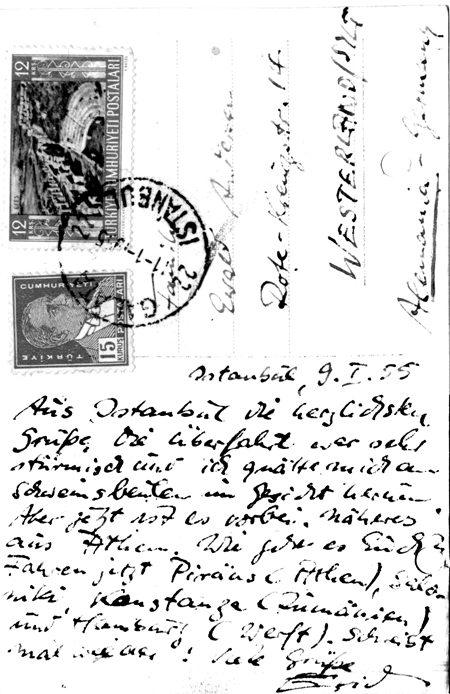 12 KRS
TÜRKİYE CUMHURİYETİ POSTALARI
12
GALATA
İSTANBUL
CUMHURİYETİ
POSTALARI
15
KURUŞ
TÜRKİYE
Ewald
Rote-Kreuzstr. 14.
WESTERLAND/SYLT
Alemania - Germany
Istanbul, 9. I. 55
Aus Istanbul die herzlichsten
Grüße. Die Überfahrt war sehr
stürmisch und ich quälte mich an
schweinsbeulen im Gesicht herum.
Aber jetzt ist es vorbei. Näheres
aus Athen. Wie geht es Euch?
Fahren jetzt Piräus (Athen), Salo-
niki, Konstanza (Rumänien)
und Hamburg (Werft). Schreibt
mal wieder! Viele Grüße
Erich